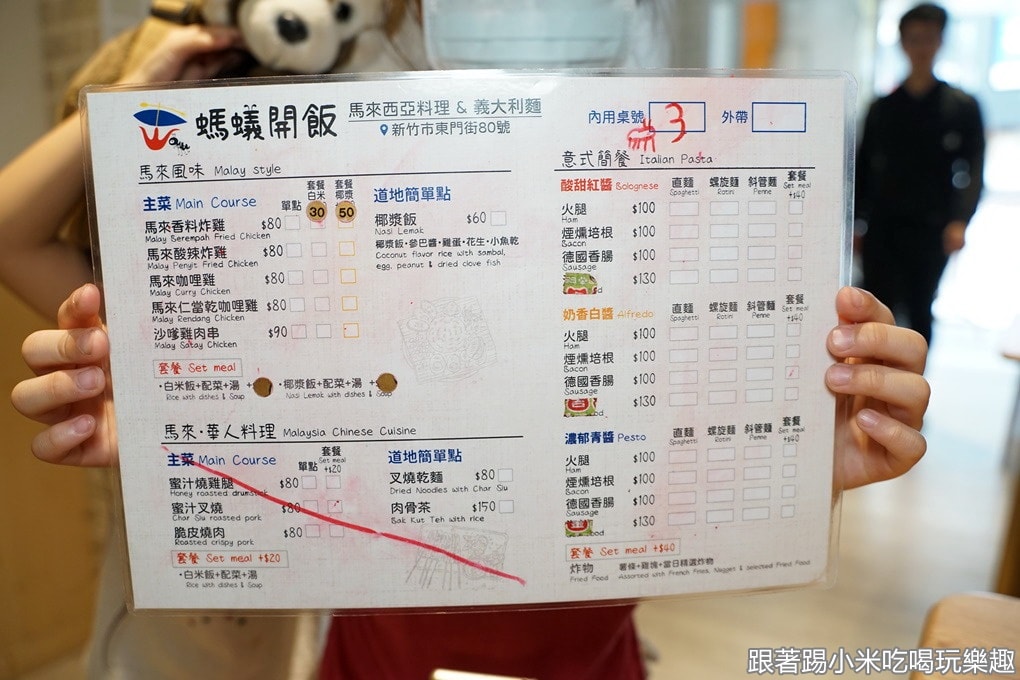 螞蟻開飯
馬來西亞料理 & 義大利麵
新竹市東門街80號
內用桌號 3 外帶
馬來風味 Malay style
主菜 Main Course 單點 套餐白米 30 套餐椰漿 50
馬來香料炸雞 $80
Malay Berempah Fried Chicken
馬來酸辣炸雞 $80
Malay Penyit Fried Chicken
馬來咖哩雞 $80
Malay Curry Chicken
馬來仁當乾咖哩雞 $80
Malay Rendang Chicken
沙嗲雞肉串 $90
Malay Satay Chicken
套餐 Set meal
·白米飯+配菜+湯 + ·椰漿飯+配菜+湯 +
Rice with dishes & Soup Nasi Lemak with dishes & Soup
道地簡單點
椰漿飯 $60
Nasi Lemak
椰漿飯·參巴醬·雞蛋·花生·小魚乾
Coconut flavor rice with sambal,
egg, peanut & dried clove fish
馬來·華人料理 Malaysia Chinese Cuisine
主菜 Main Course 單點 套餐 Set meal +$20
蜜汁燒雞腿 $80
Honey roasted drumstick
蜜汁叉燒 $80
Char Siu roasted pork
脆皮燒肉 $80
Roasted crispy pork
套餐 Set meal +$20
·白米飯+配菜+湯
Rice with dishes & Soup
道地簡單點
叉燒乾麵 $80
Dried Noodles with Char Siu
肉骨茶 $150
Bak Kut Teh with rice
意式簡餐 Italian Pasta
酸甜紅醬 Bolognese 直麵 Spaghetti 螺旋麵 Rotini 斜管麵 Penne 套餐 Set meal +$40
火腿 $100
Ham
煙燻培根 $100
Bacon
德國香腸 $100
Sausage
$130
奶香白醬 Alfredo 直麵 Spaghetti 螺旋麵 Rotini 斜管麵 Penne 套餐 Set meal +$40
火腿 $100
Ham
煙燻培根 $100
Bacon
德國香腸 $100
Sausage
$130
濃郁青醬 Pesto 直麵 Spaghetti 螺旋麵 Rotini 斜管麵 Penne 套餐 Set meal +$40
火腿 $100
Ham
煙燻培根 $100
Bacon
德國香腸 $100
Sausage
$130
套餐 Set meal +$40
炸物 薯條+雞塊+當日精選炸物
Fried Food Assorted with French Fries, Nugget & Selected Fried Food
跟著踢小米吃喝玩樂趣